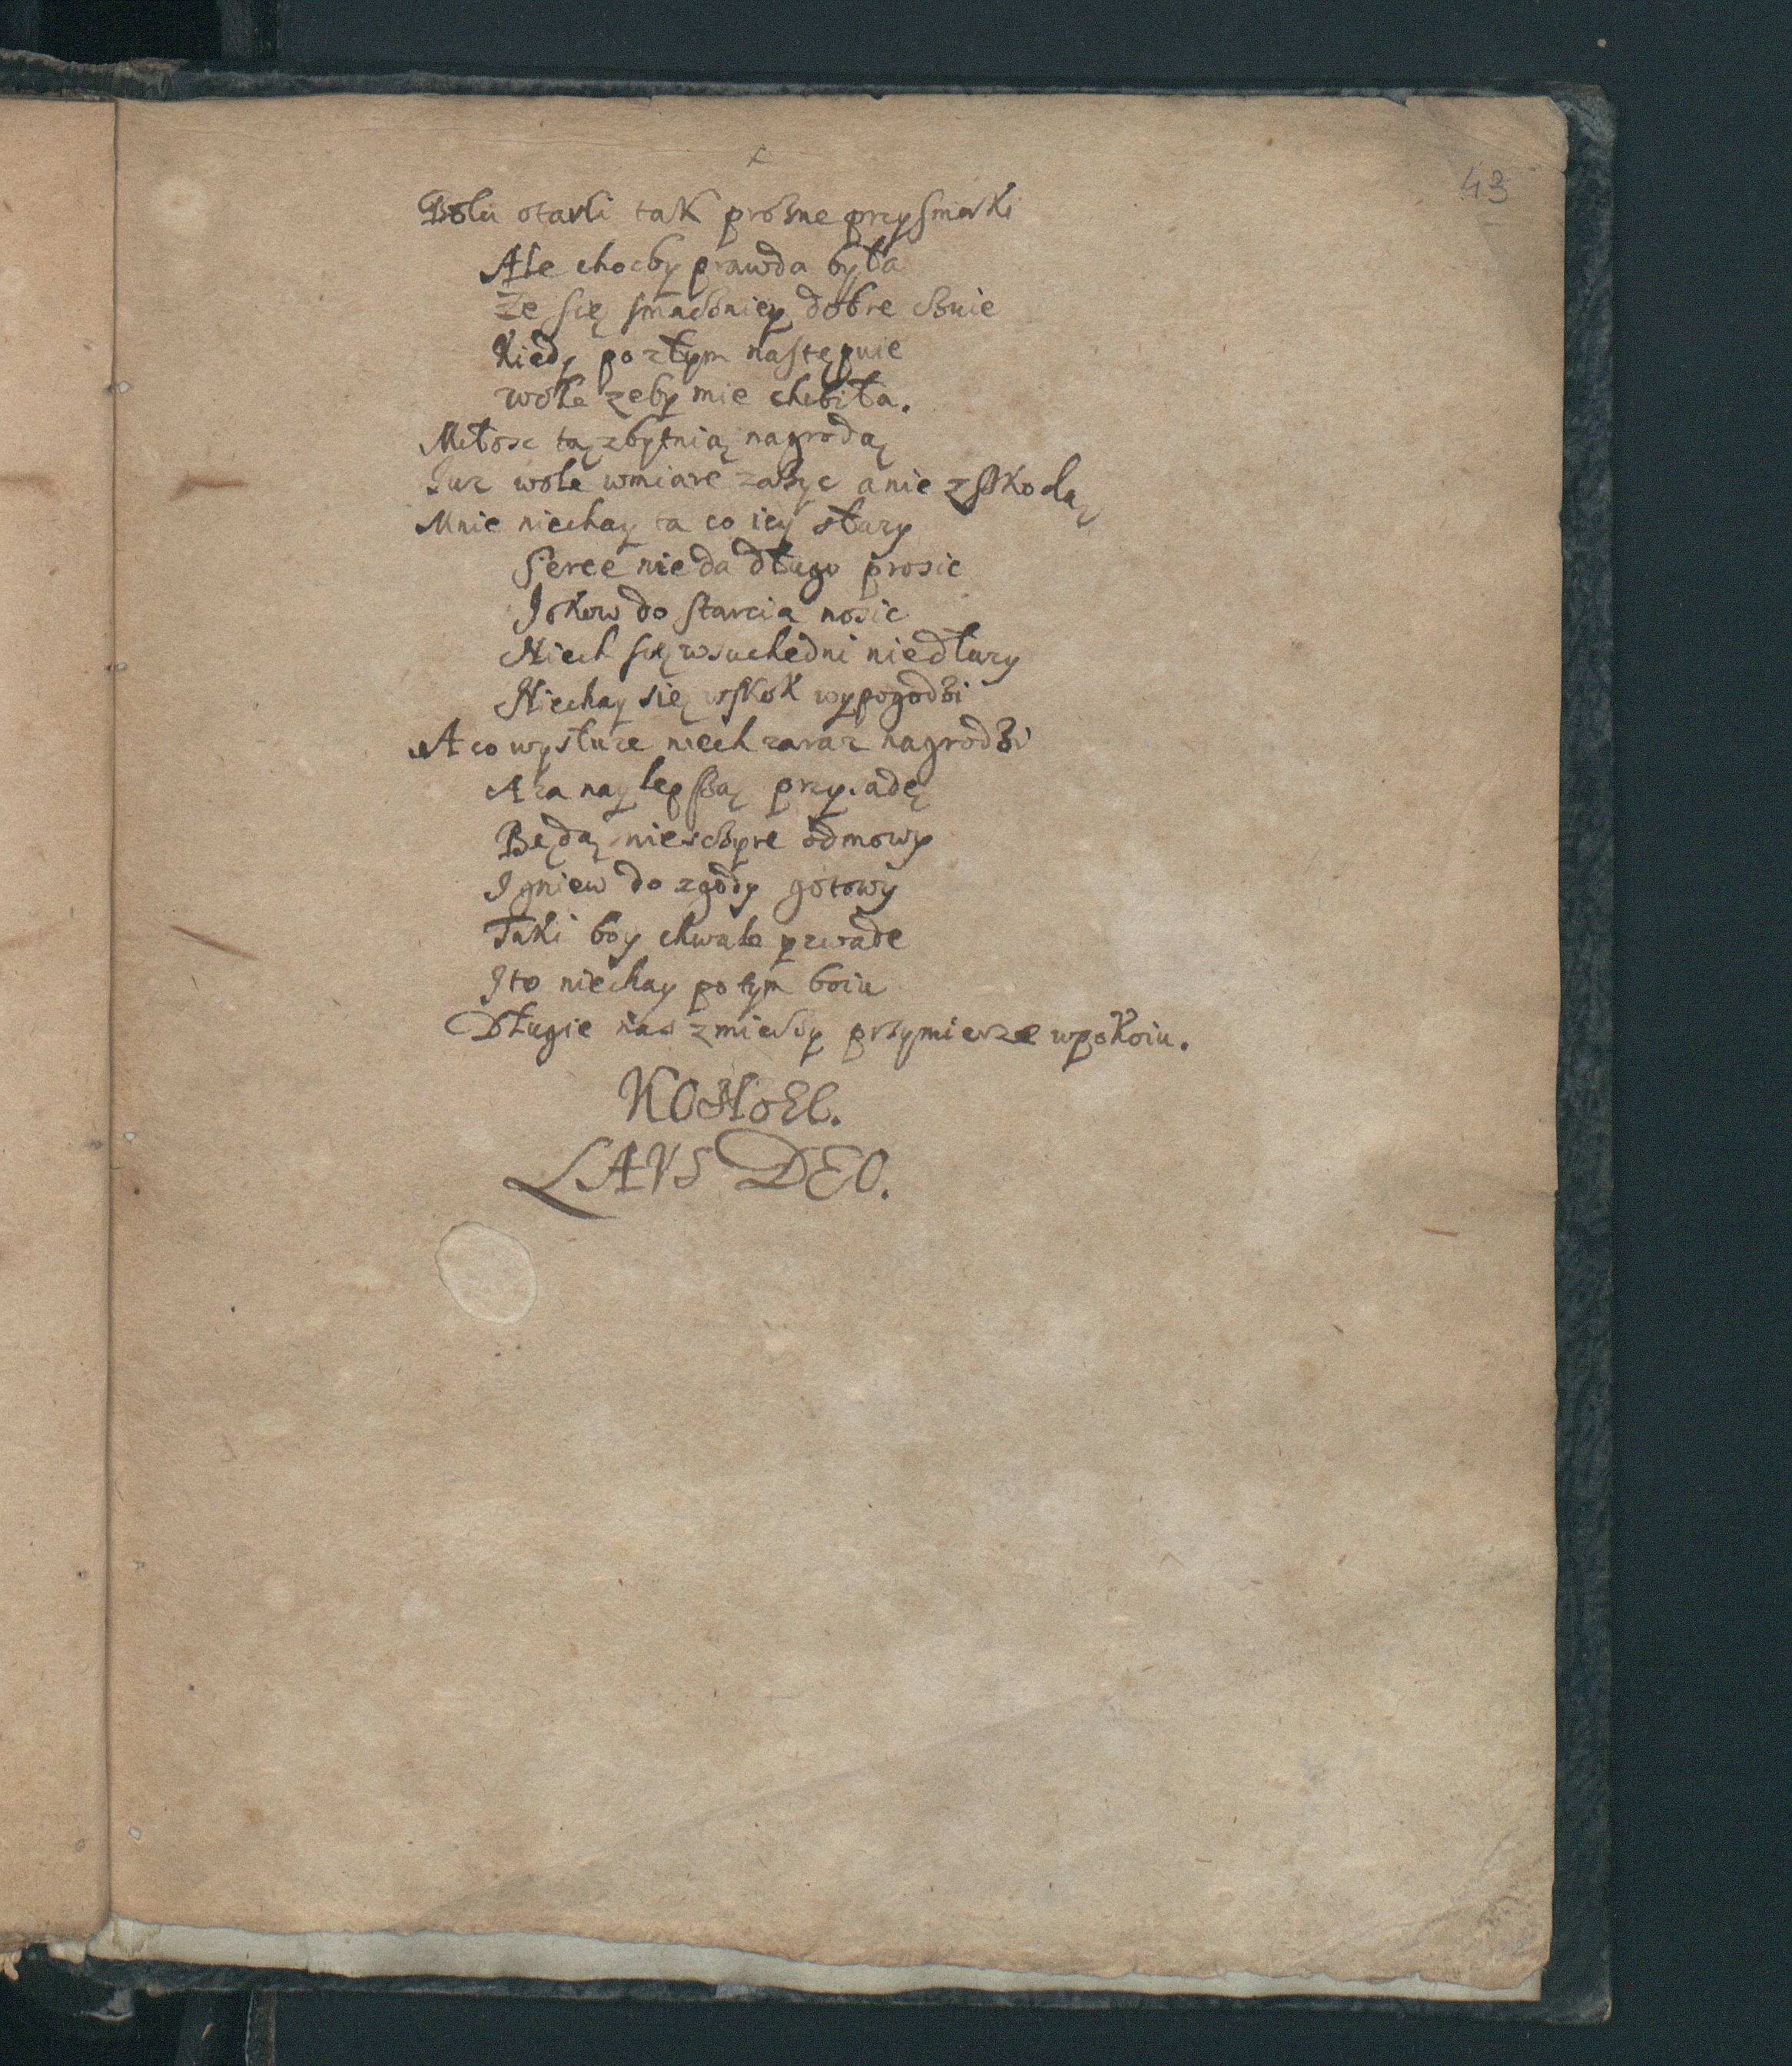 43
Bolu otarli tak prożne przysmaki
Ale choćby prawda była
Ze się smaczniey dobre czuie
Kiedy po złym następuie
wole zeby mie chibiła.
Miłosc tą zbytnią nagrodą
Iuz wole wmiare zazyc a nie z szkodą
Mnie niechay ta co iey słuzy
Serce nie da długo prosic
I okow do starcia nosic
Niech się wsuchedni niedłuzy
Niechay się wskok wypogodzi
A co wysłuze niech zaraz nagrodzi
A za naylepszą
Będą nieszczyre odmowy
I gniew do zgody gotowy
Taki boy chwale zwade
I to niechay po tym boiu
Długie nas zmieczy przymierze wpokoiu.
KONIEC.
LAVS DEO.